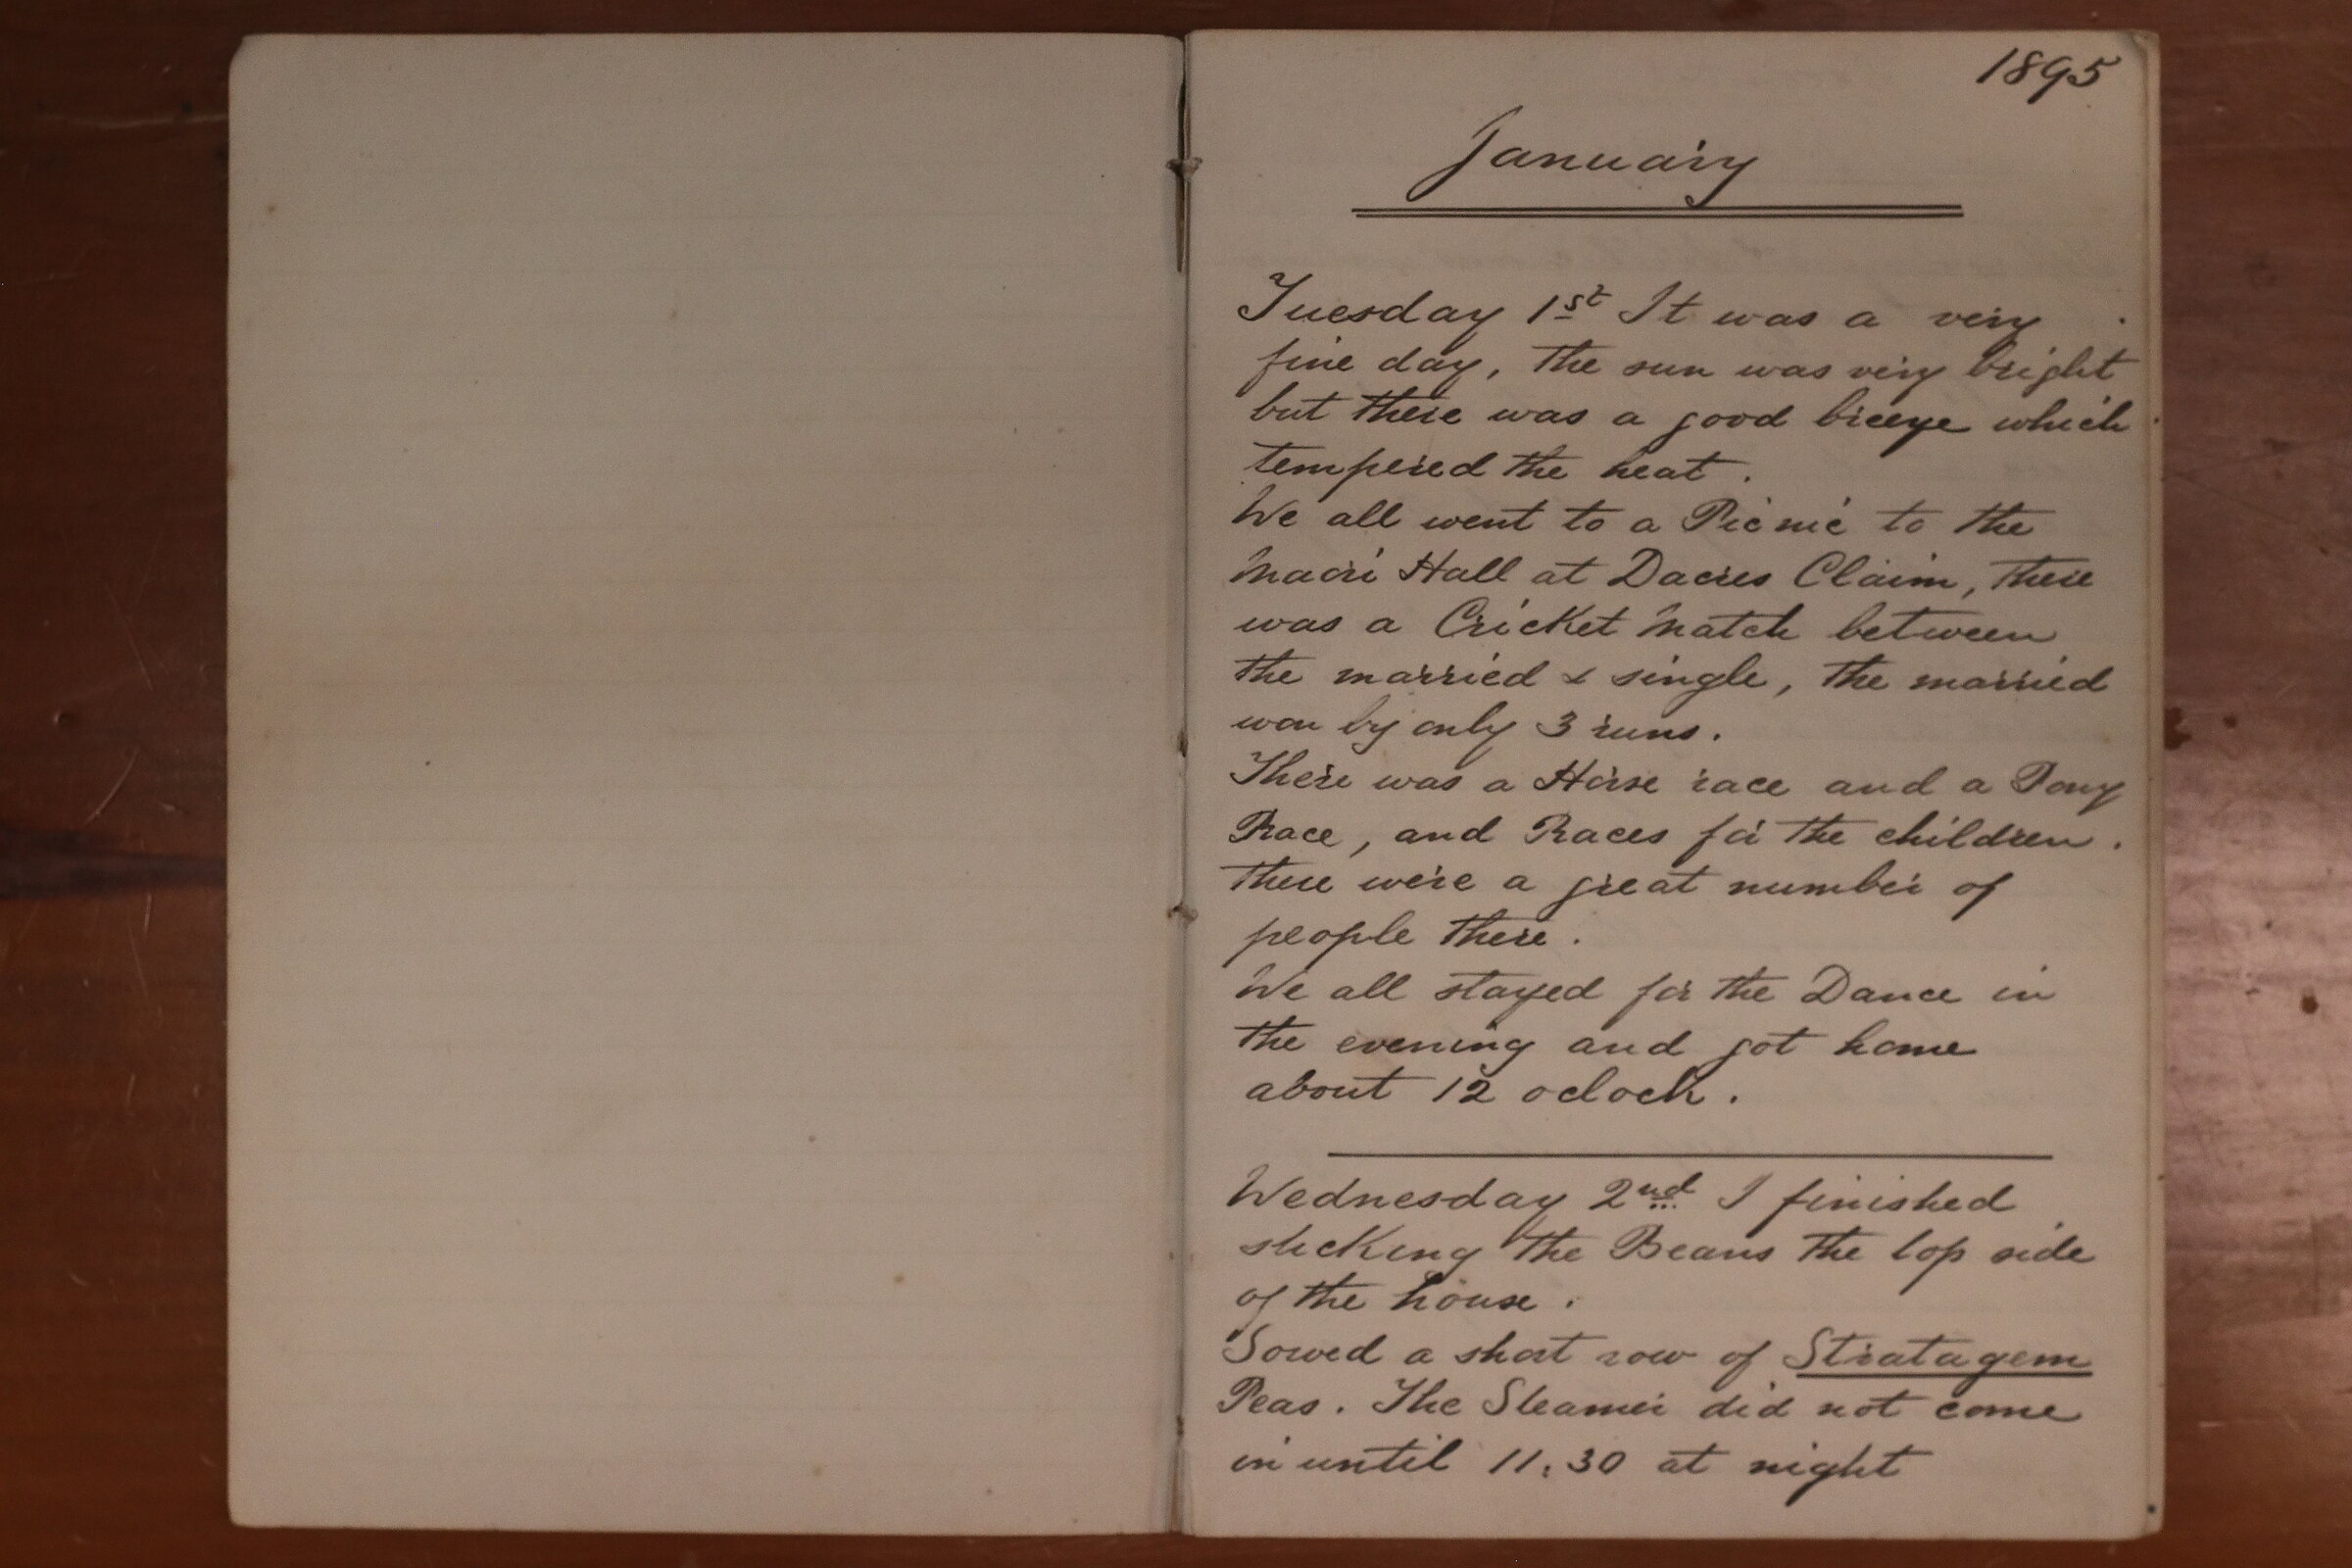 1895
January
Tuesday 1st It was a very
fine day, the sun was very bright
but there was a good breeze which
tempered the heat.
We all went to a Picnic to the
Maori Hall at Dacres Claim, there
was a Cricket Match between
the married & single, the married
won by only 3 runs.
There was a Horse race and a Pony
Race, and Races for the children.
there were a great number of
people there.
We all stayed for the Dance in
the evening and got home
about 12 oclock.
Wednesday 2nd I finished
sticking the Beans the top side
of the house.
Sowed a short row of Stratagem
Peas. The Steamer did not come
in until 11.30 at night